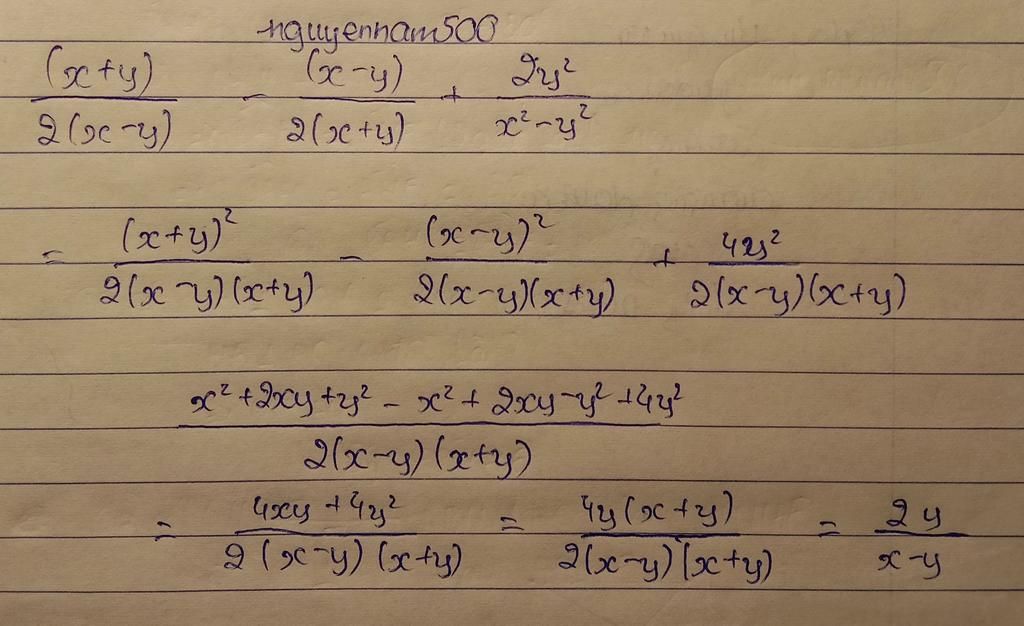 nguyennam500
(x+y)/2(x-y) - (x-y)/2(x+y) + 2y²/x²-y²
= (x+y)²/2(x-y)(x+y) - (x-y)²/2(x-y)(x+y) + 4y²/2(x-y)(x+y)
x²+2xy+y²-x²+2xy-y²+4y²/2(x-y)(x+y)
= 4xy+4y²/2(x-y)(x+y) = 4y(x+y)/2(x-y)(x+y) = 2y/x-y